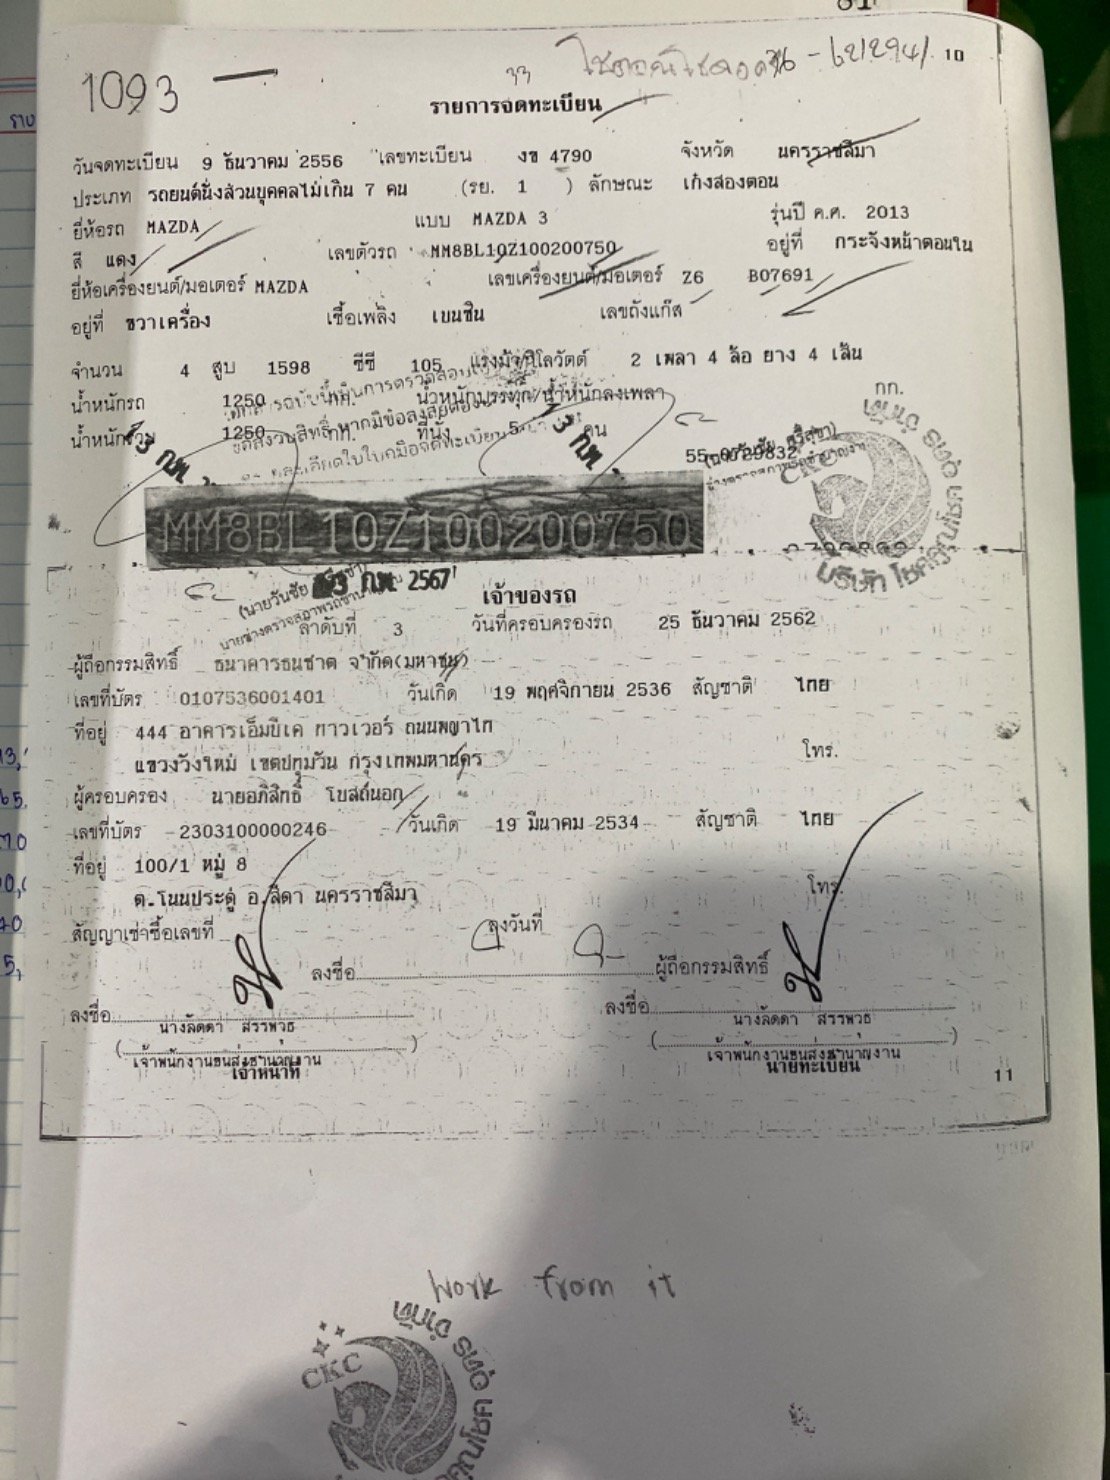 1093
10
รายการจดทะเบียน
วันจดทะเบียน 9 ธันวาคม 2556 เลขทะเบียน งข 4790 จังหวัด นครราชสีมา
ประเภท รถยนต์นั่งส่วนบุคคลไม่เกิน 7 คน (รย. 1 ) ลักษณะ เก๋งสองตอน
ยี่ห้อรถ MAZDA แบบ MAZDA 3 รุ่นปี ค.ศ. 2013
สี แดง เลขตัวรถ MM8BL10Z100200750 อยู่ที่ กระจังหน้าตอนใน
ยี่ห้อเครื่องยนต์/มอเตอร์ MAZDA เลขเครื่องยนต์/มอเตอร์ Z6 B07691
อยู่ที่ ขวาเครื่อง เชื้อเพลิง เบนซิน เลขถังแก๊ส
จำนวน 4 สูบ 1598 ซีซี 105 แรงม้า/กิโลวัตต์ 2 เพลา 4 ล้อ ยาง 4 เส้น
น้ำหนักรถ 1250 กก. น้ำหนักบรรทุก/น้ำหนักลงเพลา กก.
น้ำหนักรวม 1250 กก. ที่นั่ง 5 คน
55-0729832
CKC
MM8BL10Z100200750
2567
เจ้าของรถ
ลำดับที่ 3 วันที่ครอบครองรถ 25 ธันวาคม 2562
ผู้ถือกรรมสิทธิ์ ธนาคารธนชาต จำกัด(มหาชน)
เลขที่บัตร 0107536001401 วันเกิด 19 พฤศจิกายน 2536 สัญชาติ ไทย
ที่อยู่ 444 อาคารเอ็มบีเค ทาวเวอร์ ถนนพญาไท
แขวงวังใหม่ เขตปทุมวัน กรุงเทพมหานคร โทร.
ผู้ครอบครอง นายอภิสิทธิ์ โบสถ์นอก
เลขที่บัตร 2303100000246 วันเกิด 19 มีนาคม 2534 สัญชาติ ไทย
ที่อยู่ 100/1 หมู่ 8
ต.โนนประดู่ อ.สีดา นครราชสีมา โทร.
สัญญาเช่าซื้อเลขที่ ลงวันที่
ลงชื่อ ผู้ถือกรรมสิทธิ์
ลงชื่อ ลงชื่อ
นางลัดดา สรรพวุธ นางลัดดา สรรพวุธ
เจ้าพนักงานขนส่งชำนาญงาน เจ้าพนักงานขนส่งชำนาญงาน
เจ้าหน้าที่ นายทะเบียน
11
Work from it
CKC